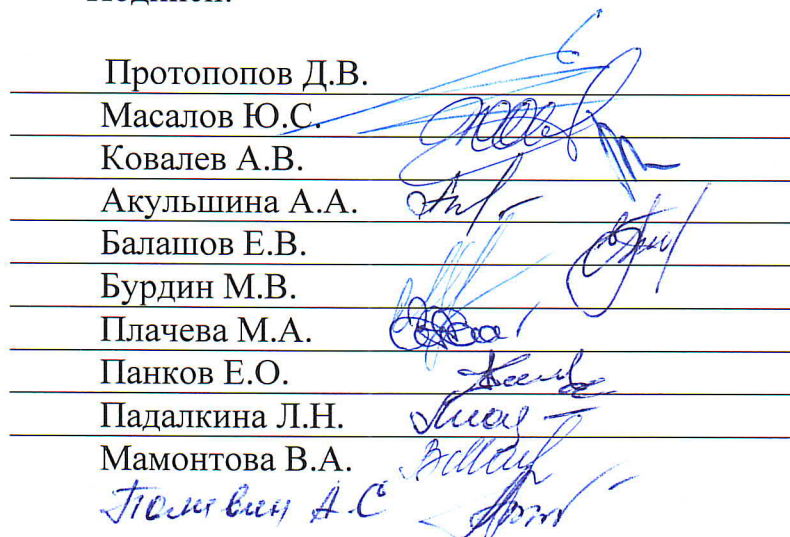 Подписи:
Протопопов Д.В.
Масалов Ю.С.
Ковалев А.В.
Акульшина А.А.
Балашов Е.В.
Бурдин М.В.
Плачева М.А.
Панков Е.О.
Падалкина Л.Н.
Мамонтова В.А.
А.С